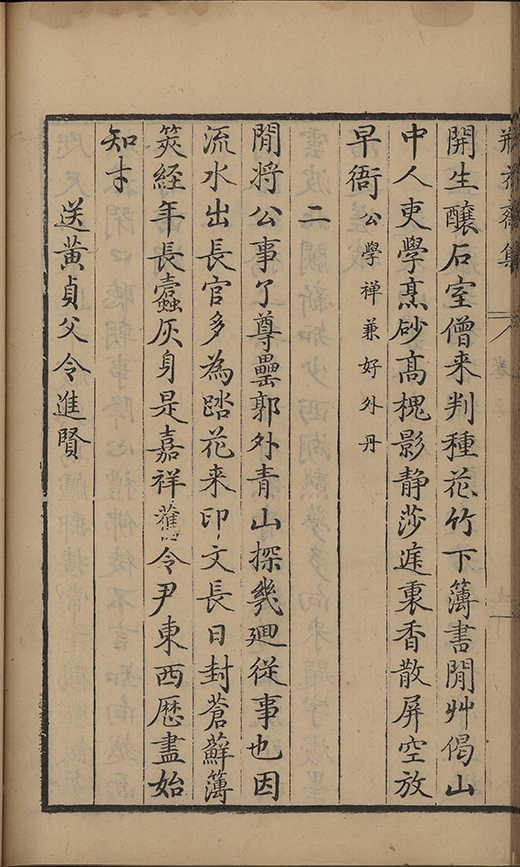 開生釀石室僧来判種花竹下簿書閒艸偈山
中人吏學烹砂髙槐影静莎庭裏香散屏空放
早衙公學禅兼好外丹
二
閒將公事了尊罍郭外青山探幾廻從事也因
流水出長官多為踏花来印文長日封蒼蘚簿
筴經年長蠧灰身是嘉祥舊令尹東西歷盡始
知才
送黄貞父令進賢